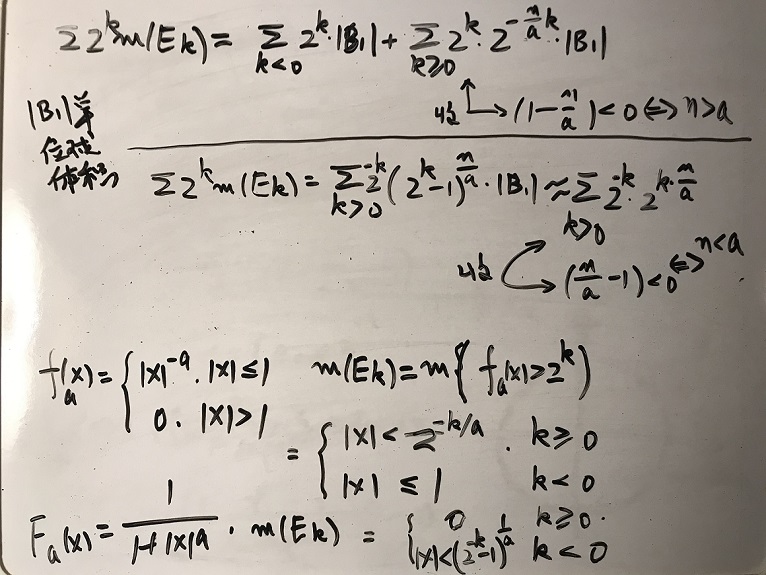 Σ2^k m(E_k) = Σ_{k<0} 2^k·|B_1| + Σ_{k≥0} 2^k·2^{-\frac{n}{a}k}·|B_1|
收敛 → (1-\frac{n}{a})<0 ⇔ n>a
|B_1|单
位球
体积
Σ2^k m(E_k) = Σ_{k>0} 2^{-k}(2^k-1)^{\frac{n}{a}}·|B_1| ≈ Σ_{k>0} 2^{-k}·2^{k·\frac{n}{a}}
收敛 (\frac{n}{a}-1)<0 ⇔ n<a
f_a(x) = { |x|^{-a}. |x|≤1
0. |x|>1
m(E_k) = m{ f_a(x)>2^k )
= { |x|<2^{-k/a}. k≥0
|x| ≤ 1 k<0
F_a(x) = \frac{1}{1+|x|^a}. m(E_k) = { 0 k≥0.
|x|<(2^{-k}-1)^{\frac{1}{a}} k<0